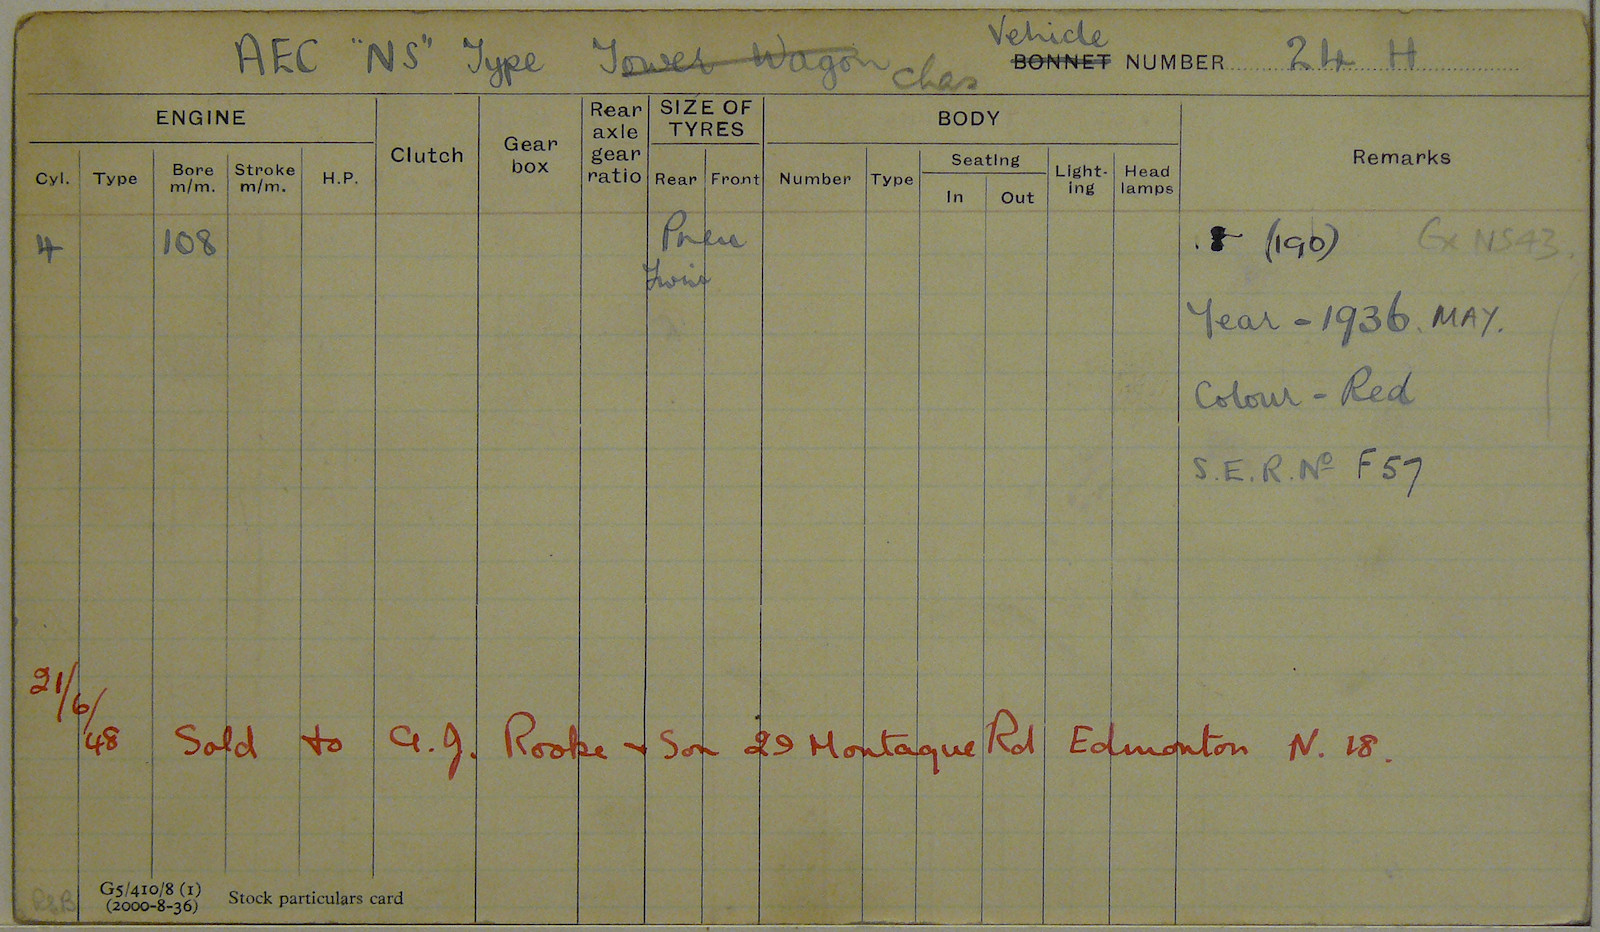 AEC "NS" Type Tower Wagon chas Vehicle BONNET NUMBER 24 H
ENGINE
Cyl. Type Bore m/m. Stroke m/m. H.P.
Clutch
Gear box
Rear axle gear ratio
SIZE OF TYRES
Rear Front
BODY
Number Type Seating In Out Light-ing Head lamps
Remarks
4 108 Pneu (190) Ex NS43.
Twin
Year - 1936. MAY.
Colour - Red
S.E.R. No F57
21/6/48 Sold to A.J. Rooke + Son 29 Montague Rd Edmonton N. 18.
G5/410/8 (1)
(2000-8-36) Stock particulars card